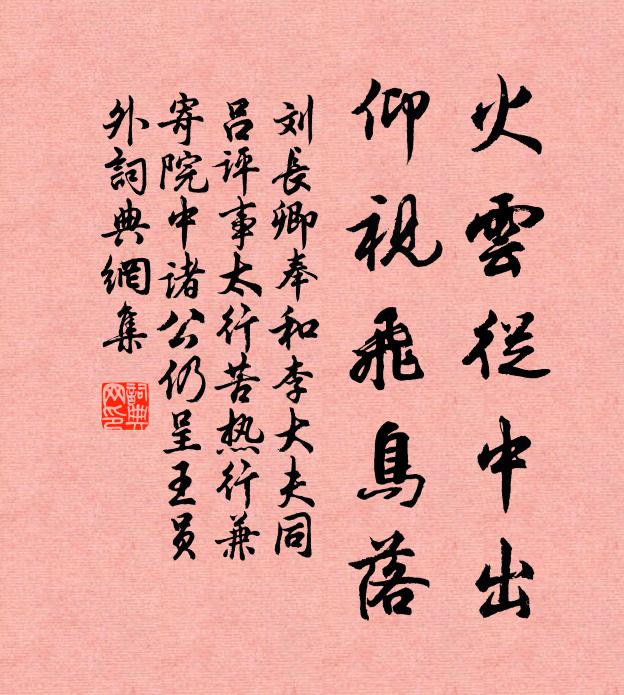 火雲從中出
仰視飛鳥落
刘長卿奉和李大夫同
吕评事太行苦热行兼
寄院中诸公仍呈王员
外詞典網集
詞典
网印